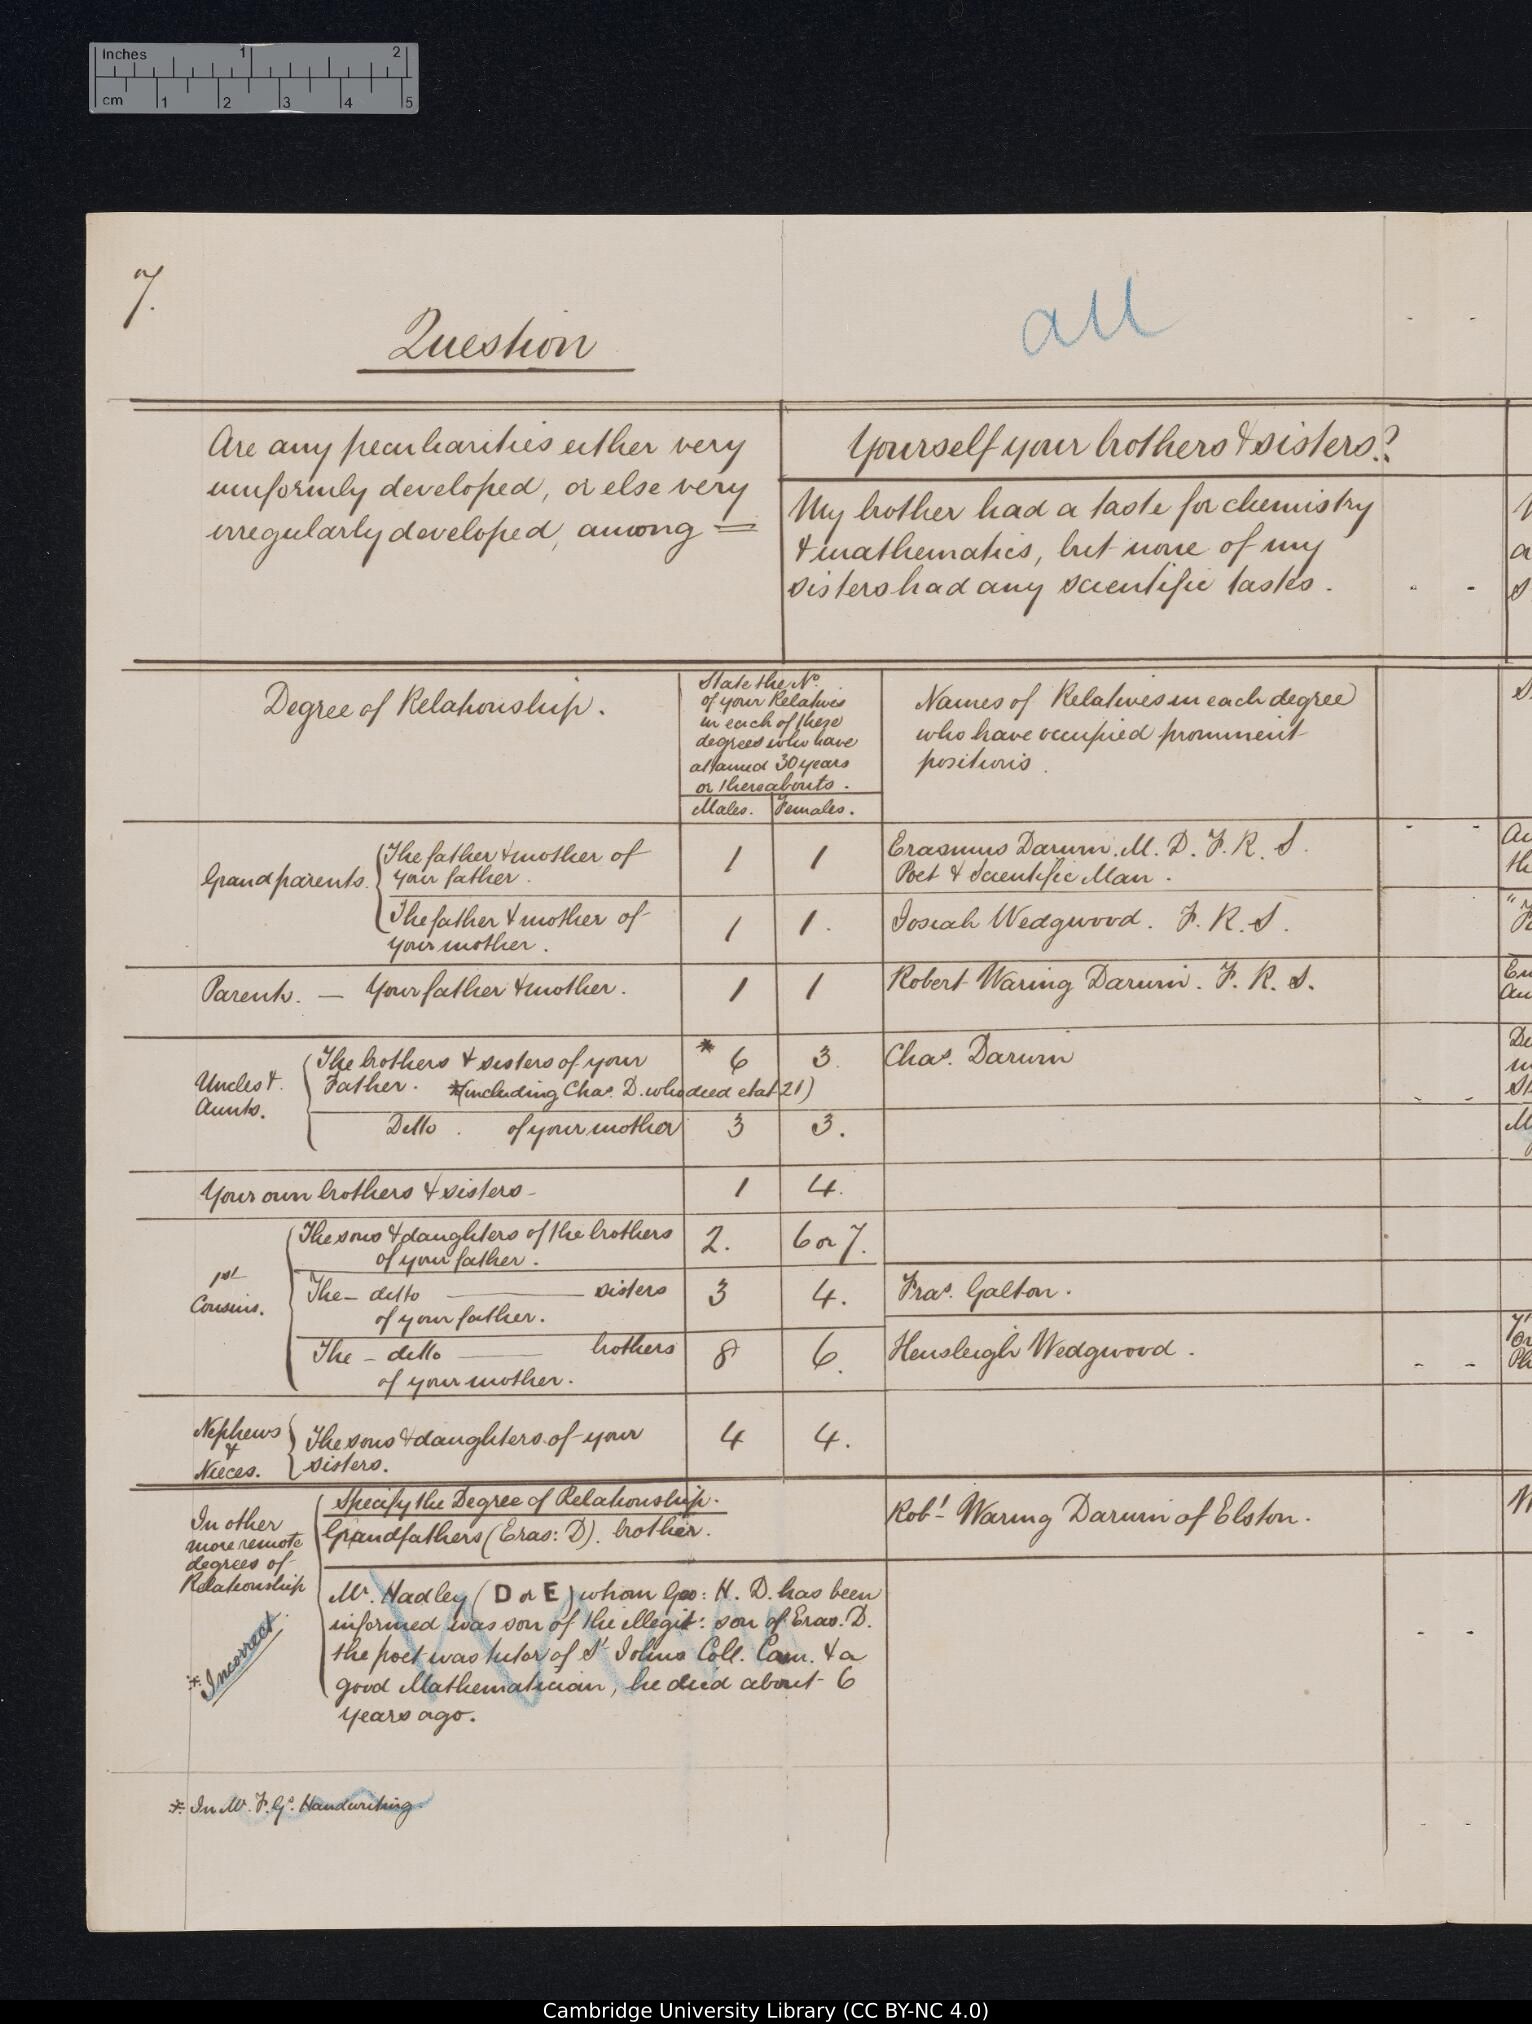 Inches 1 2
cm 1 2 3 4 5
7.
Question
all
Are any peculiarities either very
uniformly developed, or else very
irregularly developed, among =
Yourself your brothers & sisters?
My brother had a taste for chemistry
& mathematics, but none of my
sisters had any scientific tastes.
Degree of Relationship.
State the No.
of your Relatives
in each of these
degrees who have
attained 30 years
or thereabouts.
Males. Females.
Names of Relatives in each degree
who have occupied prominent
positions.
Grandparents.
The father & mother of
your father.
1 1
Erasmus Darwin. M. D. F. R. S.
Poet & Scientific Man.
The father & mother of
your mother.
1 1.
Josiah Wedgwood. F. R. S.
Parents. — Your father & mother.
1 1
Robert Waring Darwin. F. R. S.
Uncles &
Aunts.
The brothers & sisters of your
Father. *(including Chas. D. who died etat 21)
* 6 3
Chas. Darwin
Ditto. of your mother
3 3.
Your own brothers & sisters—
1 4.
1st
Cousins.
The sons & daughters of the brothers
of your father.
2. 6 or 7.
The — ditto — sisters
of your father.
3 4.
Fras. Galton.
The — ditto — brothers
of your mother.
8 6.
Hensleigh Wedgwood.
Nephews
&
Nieces.
The sons & daughters of your
sisters.
4 4.
In other
more remote
degrees of
Relationship
Specify the Degree of Relationship.
Grandfathers (Eras: D). brother.
Robt. Waring Darwin of Elston.
Mr. Hadley (D or E) whom Geo: H. D. has been
informed was son of the illegit: son of Eras. D.
the poet was tutor of St Johns Coll. Cam. & a
good Mathematician, he died about 6
years ago.
* Incorrect.
* In Mr. F. Gs. Handwriting.
Cambridge University Library (CC BY-NC 4.0)